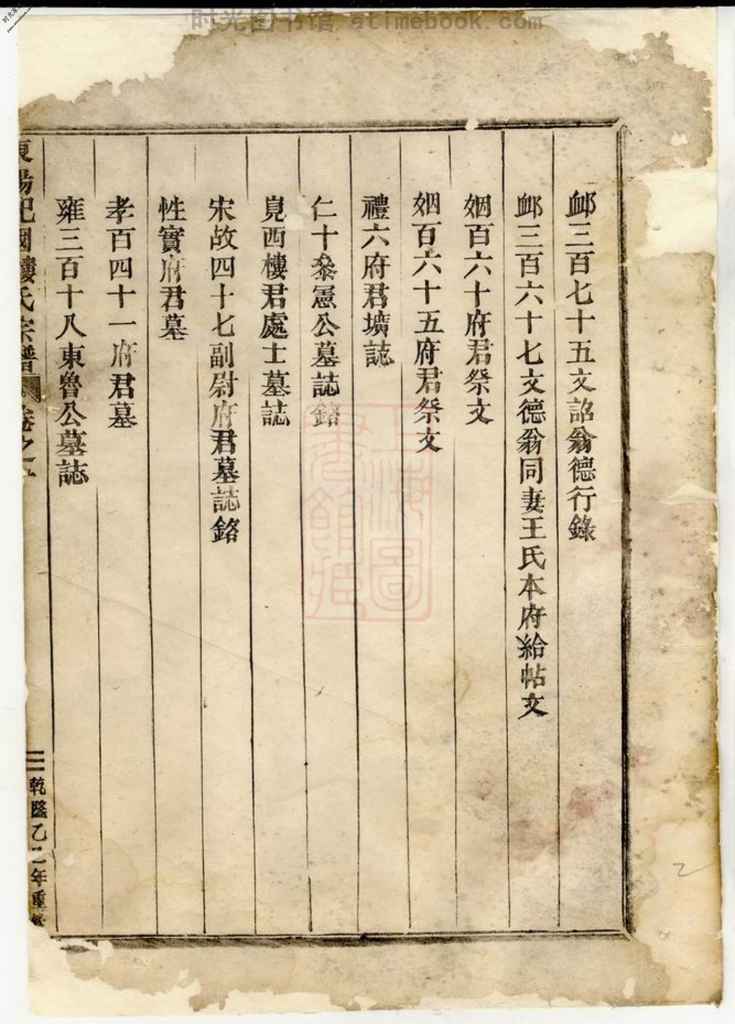 时光图书馆 etimebook.com
䘏三百七十五文詔翁德行錄
䘏三百六十七文德翁同妻王氏本府給帖文
姻百六十府君祭文
姻百六十五府君祭文
禮六府君壙誌
仁十叅憲公墓誌銘
見西樓君處士墓誌
宋故四十七副尉府君墓誌銘
性實府君墓
孝百四十一府君墓
雍三百十八東魯公墓誌
東陽杞國樓氏宗譜 卷之
乾隆乙 年重
上海圖書館藏